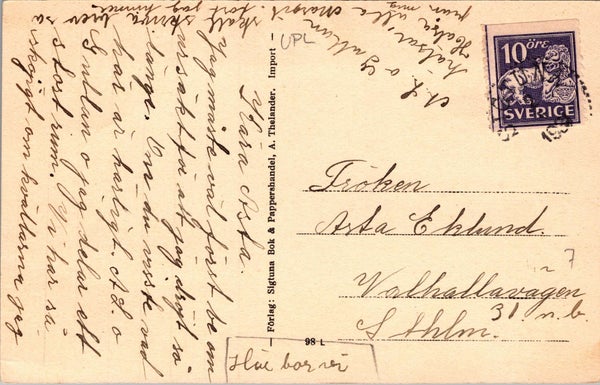 Kära Asta.
Jag måste väl först be om
ursäkt för att jag dröjt så
länge. Om du visste vad
här är härligt. A.L. o
Gullan o jag delar ett
stort rum. Vi har så
skojigt om kvällarna jag
skall skriva brev så
fort jag hinner.
Hälsa alla
från mig
hälsar
A.L. o Gullan
UPL
10 ÖRE
SVERIGE
Fröken
Asta Eklund.
Valhallavägen
31 n.b.
Sthlm.
7
— Förlag: Sigtuna Bok & Pappershandel, A. Thelander. Import —
98 L
Här bor vi